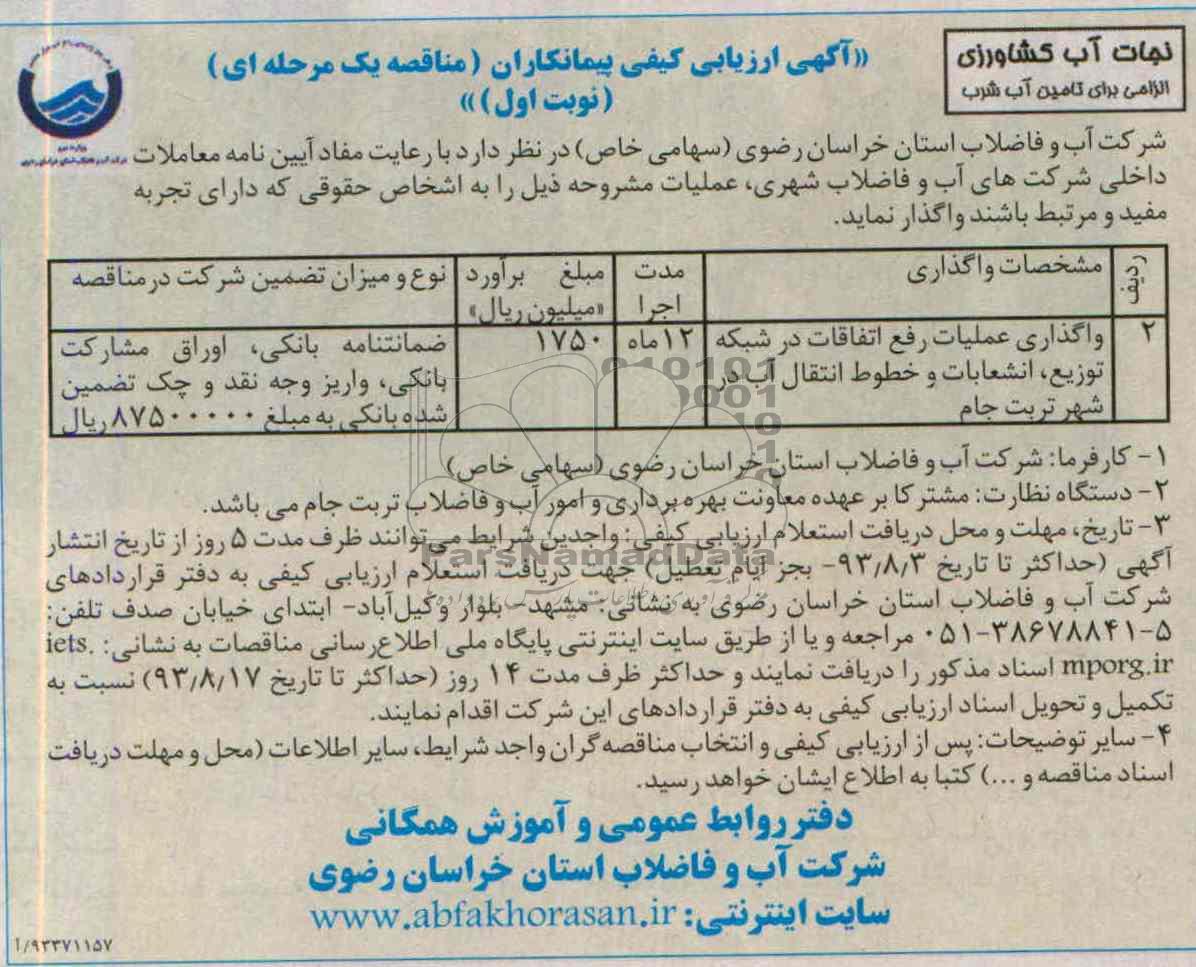 نجات آب کشاورزی
الزامی برای تامین آب شرب
«آگهی ارزیابی کیفی پیمانکاران (مناقصه یک مرحله ای)
(نوبت اول)»
شرکت آب و فاضلاب استان خراسان رضوی (سهامی خاص) در نظر دارد با رعایت مفاد آیین نامه معاملات
داخلی شرکت های آب و فاضلاب شهری، عملیات مشروحه ذیل را به اشخاص حقوقی که دارای تجربه
مفید و مرتبط باشند واگذار نماید.
ردیف	مشخصات واگذاری	مدت اجرا	مبلغ برآورد «میلیون ریال»	نوع و میزان تضمین شرکت در مناقصه
۲	واگذاری عملیات رفع اتفاقات در شبکه	۱۲ ماه	۱۷۵۰	ضمانتنامه بانکی، اوراق مشارکت
توزیع، انشعابات و خطوط انتقال آب در	بانکی، واریز وجه نقد و چک تضمین
شهر تربت جام	شده بانکی به مبلغ ۸۷۵۰۰۰۰۰ ریال
۱- کارفرما: شرکت آب و فاضلاب استان خراسان رضوی (سهامی خاص)
۲- دستگاه نظارت: مشترکا بر عهده معاونت بهره برداری و امور آب و فاضلاب تربت جام می باشد.
۳- تاریخ، مهلت و محل دریافت استعلام ارزیابی کیفی: واجدین شرایط می‌توانند ظرف مدت ۵ روز از تاریخ انتشار
آگهی (حداکثر تا تاریخ ۹۳/۸/۳- بجز ایام تعطیل) جهت دریافت استعلام ارزیابی کیفی به دفتر قراردادهای
شرکت آب و فاضلاب استان خراسان رضوی به نشانی: مشهد- بلوار وکیل‌آباد- ابتدای خیابان صدف تلفن:
۵-۳۸۶۷۸۸۴۱-۰۵۱ مراجعه و یا از طریق سایت اینترنتی پایگاه ملی اطلاع‌رسانی مناقصات به نشانی: iets.
mporg.ir اسناد مذکور را دریافت نمایند و حداکثر ظرف مدت ۱۴ روز (حداکثر تا تاریخ ۹۳/۸/۱۷) نسبت به
تکمیل و تحویل اسناد ارزیابی کیفی به دفتر قراردادهای این شرکت اقدام نمایند.
۴- سایر توضیحات: پس از ارزیابی کیفی و انتخاب مناقصه‌گران واجد شرایط، سایر اطلاعات (محل و مهلت دریافت
اسناد مناقصه و ...) کتبا به اطلاع ایشان خواهد رسید.
دفتر روابط عمومی و آموزش همگانی
شرکت آب و فاضلاب استان خراسان رضوی
سایت اینترنتی: www.abfakhorasan.ir
۹۳۳۷۱۱۵۷/آ
ParsNamadData